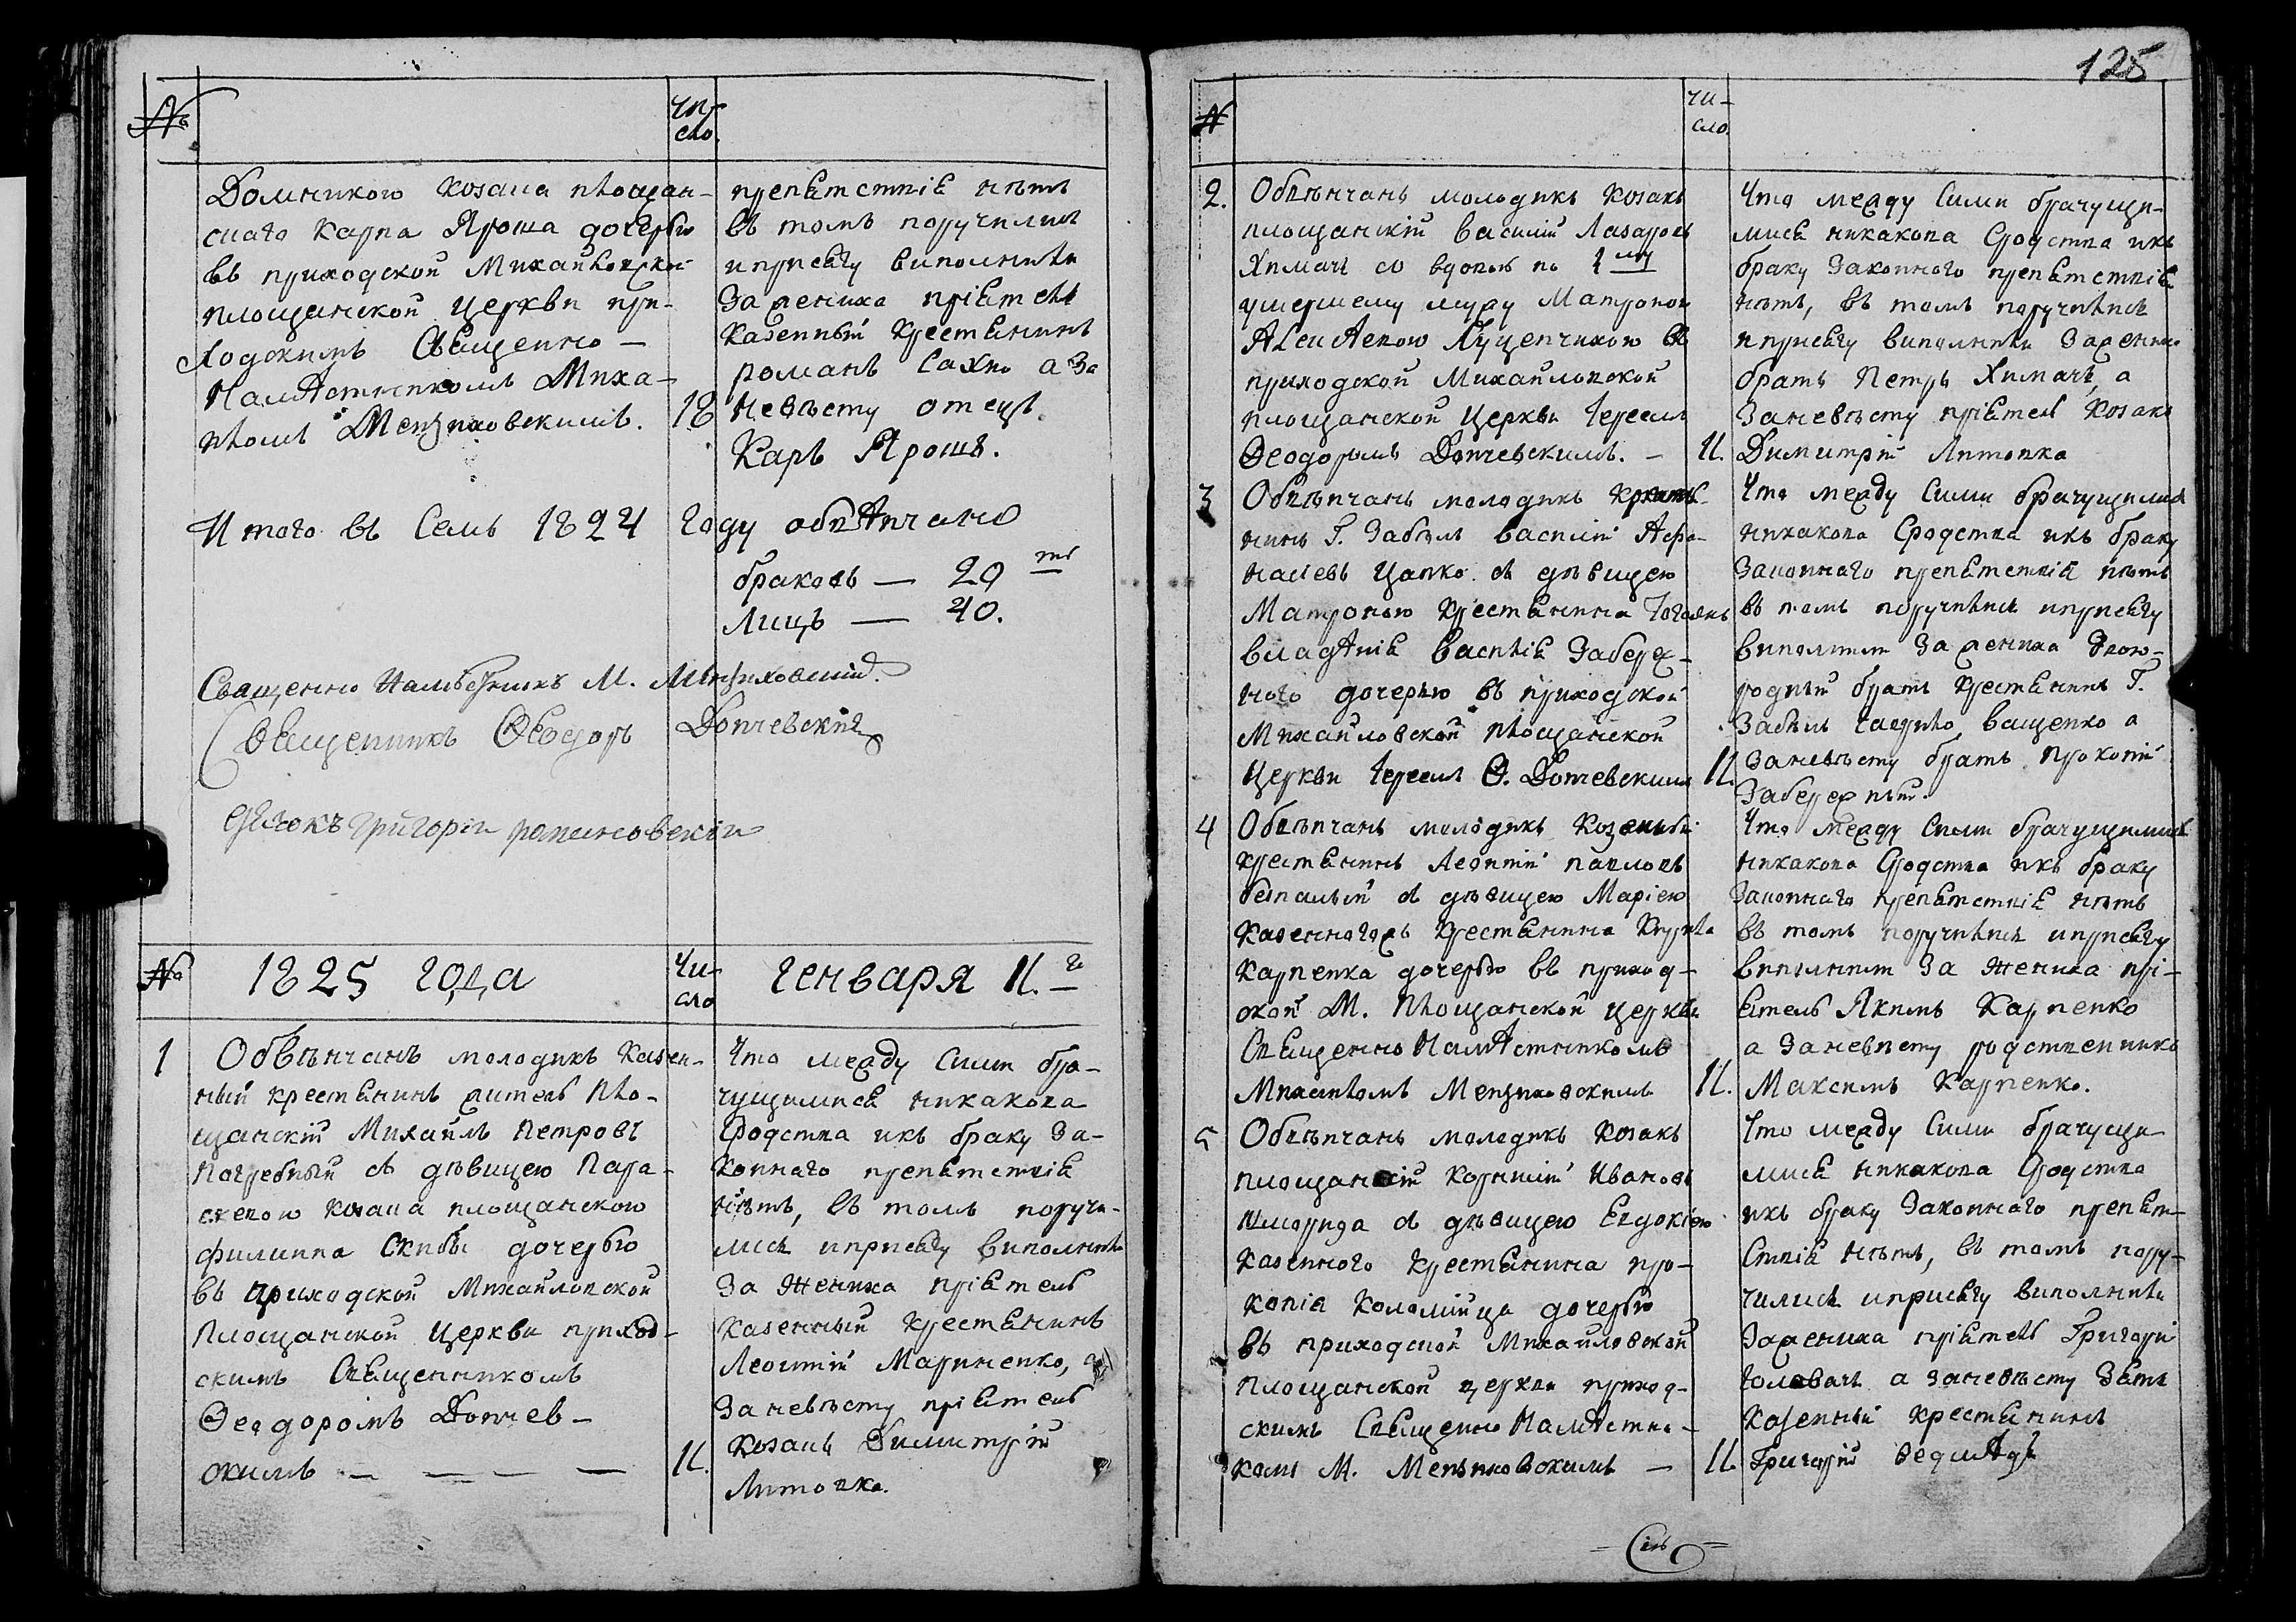 125
№
чи-
сло.
Домникою козака площан-
скаго Карпа Яроша дочерью
въ приходской Михайловской
площанской Церкви при-
ходскимъ Священно-
Намѣстникомъ Миха-
иломъ
18
препятствія нѣтъ
въ томъ поручились
и присягу виполнили
за жениха пріятель
казенный крестянинъ
романъ Сахно а за
невѣсту отецъ
Карпъ Ярошъ.
Итого въ семъ 1824 году обвѣнчано
браковъ — 20 ть
Лицъ — 40.
Священно Намѣстникъ М.
Священникъ Ѳеодоръ
Дячокъ Григорій
№ 1825 года
Чи-
сло
Генваря 11. го
1
Обвѣнчанъ молодикъ казен-
ный крестянинъ житель пло-
щанскій Михаилъ Петровъ
Погребный съ дѣвицею Пара-
скевою козака площанского
филиппа Скибы дочерью
въ приходской Михайловской
Площанской Церкви приход-
скимъ Священникомъ
Ѳеодоромъ
скимъ — — — —
11.
Что между сими бра-
чущимися никакова
Сродства икъ браку за-
коннаго препятствія
нѣтъ, въ томъ поручи-
лись и присягу виполнили
за жениха пріятель
казенный крестянинъ
Леонтій Мариненко, а
за невѣсту пріятель
Козакъ Димитрій
Литовка.
№
чи-
сло.
2.
Обвѣнчанъ молодикъ козакъ
площанскій Василій Лазаровъ
Химачъ со вдовою по 1 му
умершему мужу Матроною
Алексѣевою въ
приходской Михайловской
площанской Церкви Іереемъ
Ѳеодоромъ —
11.
Что между сими брачущи-
мися никакова Сродства икъ
браку законного препятствія
нѣтъ, въ томъ поручились
и присягу виполнили за жениха
братъ Петръ Химачъ, а
за невѣсту пріятель козакъ
Димитрій Литовка
3
Обвѣнчанъ молодикъ крестя-
нинъ Г. Забѣли Василій Афа-
насіевъ Цапко съ дѣвицею
Матроною крестянина тогожъ
владѣнія Василія Забереж-
ного дочерью въ приходской
Михайловской площанской
Церкви Іереемъ Ѳ.
11.
Что между сими брачущимися
никакова Сродства икъ браку
законнаго препятствія нѣтъ
въ томъ поручились и присягу
виполнили за жениха двою-
родный братъ крестянинъ Г.
Забѣли Ващенко а
за невѣсту братъ Прокопій
Забережный.
4
Обвѣнчанъ молодикъ козеный
крестянинъ Леонтій павловъ
безпалый съ дѣвицею Маріею
казенногожъ крестянина Кирила
Карпенка дочерью въ приход-
ской М. Площанской церкви
Священно Намѣстникомъ
Михаиломъ
11.
Что между сими брачущимися
никакова Сродства икъ браку
законнаго препятствія нѣтъ
въ томъ поручились и присягу
виполнили за жениха прі-
ятель Якимъ Карпенко
а за невѣсту родственникъ
Максимъ Карпенко.
5
Обвѣнчанъ молодикъ козакъ
площанскій Корнилій Ивановъ
съ дѣвицею Евдокіею
казенного крестянина про-
копія Коломійца дочерью
въ приходской Михайловской
площанской церкви приход-
скимъ Священно Намѣстни-
комъ М. —
11.
Что между сими брачущи-
мися никакова Сродства
икъ браку законнаго препят-
ствія нѣтъ, въ томъ пору-
чились и присягу виполнили
за жениха пріятель Григорій
Головачъ а за невѣсту зять
казенный крестянинъ
Григорій